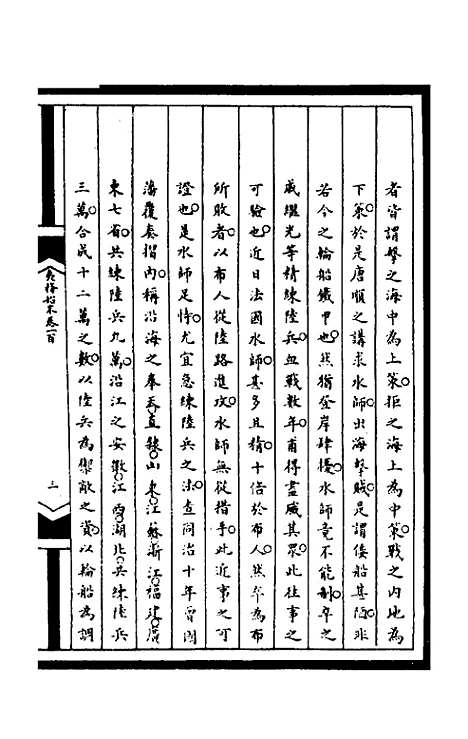 者皆謂擊之海中為上策拒之海上為中策戰之內地為
下策於是唐順之講求水師出海擊賊是謂倭船甚陋非
若今之輪船鐵甲也然猶登岸肆擾水師竟不能制卒之
戚繼光等精練陸兵血戰數年甫得盡威其眾此往事之
可驗也近日法國水師甚多且精十倍於布人然卒為布
所敗者以布人從陸路進攻水師無從措手此近事之可
證也是水師足恃尤宜急練陸兵之法查同治十年曾國
藩覆奏摺內稱沿海之奉天直隸山東江蘇浙江福建廣
東七省共練陸兵九萬沿江之安徽江西湖北共練陸兵
三萬合成十二萬之數以陸兵為禦敵之資以輪船為調
夷務始末卷一百
三